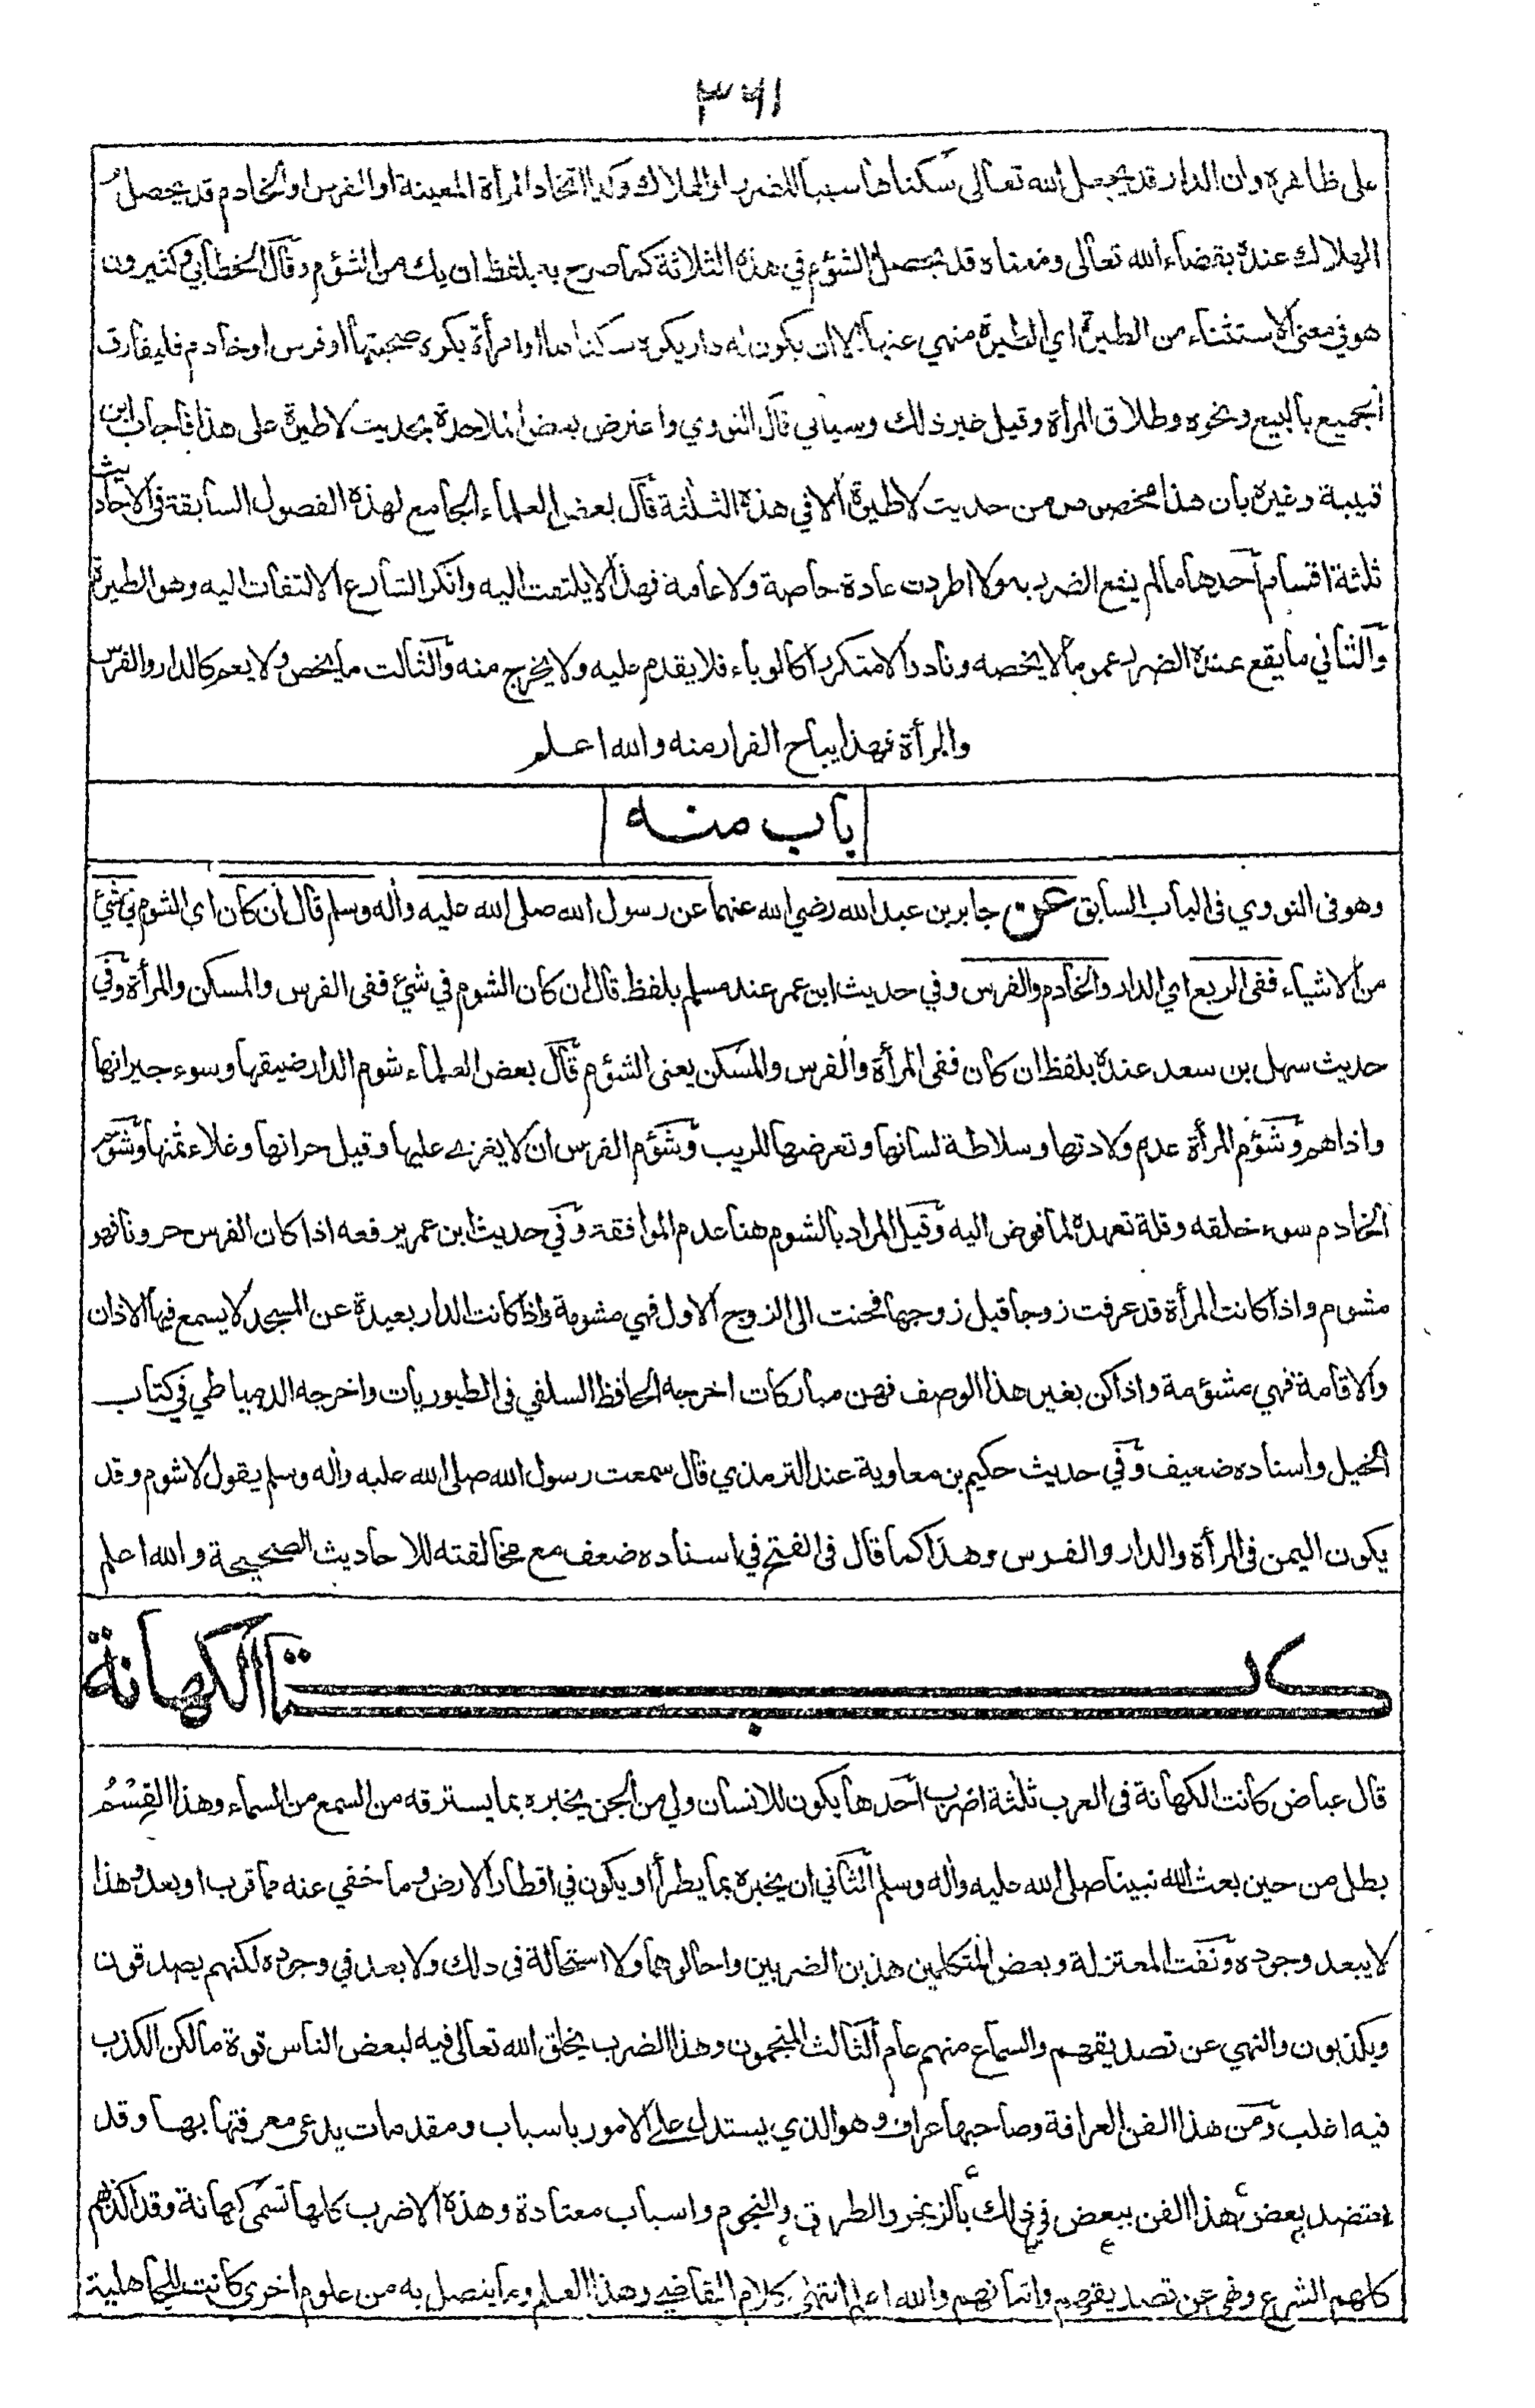 ٣٦١
على ظاهره وان الدار قد يجعل الله تعالى سكناها سببا للضرر او الهلاك وكذا اتخاذ المرأة المعينة او الفرس او الخادم قد يحصل
الهلاك عنده بقضاء الله تعالى ومعناه قد يحصل الشؤم في هذه الثلاثة كما صرح به بلفظ ان يك من الشؤم وقال الخطابي وكثيرون
هو في معنى الاستثناء من الطيرة اي الطيرة منهي عنها الا ان يكون له دار يكره سكناها او امرأة يكره صحبتها او فرس او خادم فليفارق
الجميع بالبيع ونحوه وطلاق المرأة وقيل غير ذلك وسيأتي قال النووي واعترض بعض الملاحدة بحديث لا طيرة على هذا فاجاب ابن
قتيبة وغيره بان هذا مخصوص من حديث لا طيرة الا في هذه الثلثة قال بعض العلماء الجامع لهذه الفصول السابقة في الاحاديث
ثلثة اقسام احدها مالم يقع الضرر به ولا اطردت عادة خاصة ولا عامة فهذا لا يلتفت اليه وانكر الشارع الالتفات اليه وهو الطيرة
والثاني ما يقع عنده الضرر عموما لا يخصه ونادرا لا متكررا كالوباء فلا يقدم عليه ولا يخرج منه والثالث ما يخص ولا يعم كالدار والفرس
والمرأة فهذا يباح الفرار منه والله اعلم
باب منه
وهو في النووي في الباب السابق عن جابر بن عبد الله رضي الله عنهما عن رسول الله صلى الله عليه واله وسلم قال ان كان اي الشوم في شئ
من الاشياء ففي الربع اي الدار والخادم والفرس وفي حديث ابن عمر عند مسلم بلفظ قال ان كان الشوم في شئ ففي الفرس والمسكن والمرأة وفي
حديث سهل بن سعد عنده بلفظ ان كان ففي المرأة والفرس والمسكن يعني الشؤم قال بعض العلماء شوم الدار ضيقها وسوء جيرانها
واذاهم وشؤم المرأة عدم ولادتها وسلاطة لسانها وتعرضها للريب وشؤم الفرس ان لا يغزى عليها وقيل حرانها وغلاء ثمنها وشؤم
الخادم سوء خلقه وقلة تعهده لما فوض اليه وقيل المراد بالشوم هنا عدم الموافقة وفي حديث ابن عمر يرفعه اذا كان الفرس حرونا فهو
مشوم واذا كانت المرأة قد عرفت زوجا قبل زوجها فحنت الى الزوج الاول فهي مشومة واذا كانت الدار بعيدة عن المسجد لا يسمع فيها الاذان
والاقامة فهي مشؤمة واذا كن بغير هذا الوصف فهن مباركات اخرجه الحافظ السلفي في الطيوريات واخرجه الدمياطي في كتاب
الخيل واسناده ضعيف وفي حديث حكيم بن معاوية عند الترمذي قال سمعت رسول الله صلى الله عليه واله وسلم يقول لا شوم وقد
يكون اليمن في المرأة والدار والفرس وهذا كما قال في الفتح في اسناده ضعف مع مخالفته للاحاديث الصحيحة والله اعلم
كتاب الكهانة
قال عياض كانت الكهانة في العرب ثلثة اضرب احدها يكون للانسان ولي من الجن يخبره بما يسترقه من السمع من السماء وهذا القسم
بطل من حين بعث الله نبينا صلى الله عليه واله وسلم الثاني ان يخبره بما يطرأ او يكون في اقطار الارض وما خفي عنه مما قرب او بعد وهذا
لا يبعد وجوده ونفت المعتزلة وبعض المتكلمين هذين الضربين واحالوهما ولا استحالة في ذلك ولا بعد في وجوده لكنهم يصدقون
ويكذبون والنهي عن تصديقهم والسماع منهم عام الثالث المنجمون وهذا الضرب يخلق الله تعالى فيه لبعض الناس قوة ما لكن الكذب
فيه اغلب ومن هذا الفن العرافة وصاحبها عراف وهو الذي يستدل على الامور باسباب ومقدمات يدعى معرفتها بها وقد
يعتضد بعض هذا الفن ببعض في ذلك بالزجر والطرق والنجوم واسباب معتادة وهذه الاضرب كلها تسمى كهانة وقد اكذبهم
كلهم الشرع ونهى عن تصديقهم واتيانهم والله اعلم انتهى كلام القاضي وهذا العلم وما يتصل به من علوم اخرى كانت للجاهلية